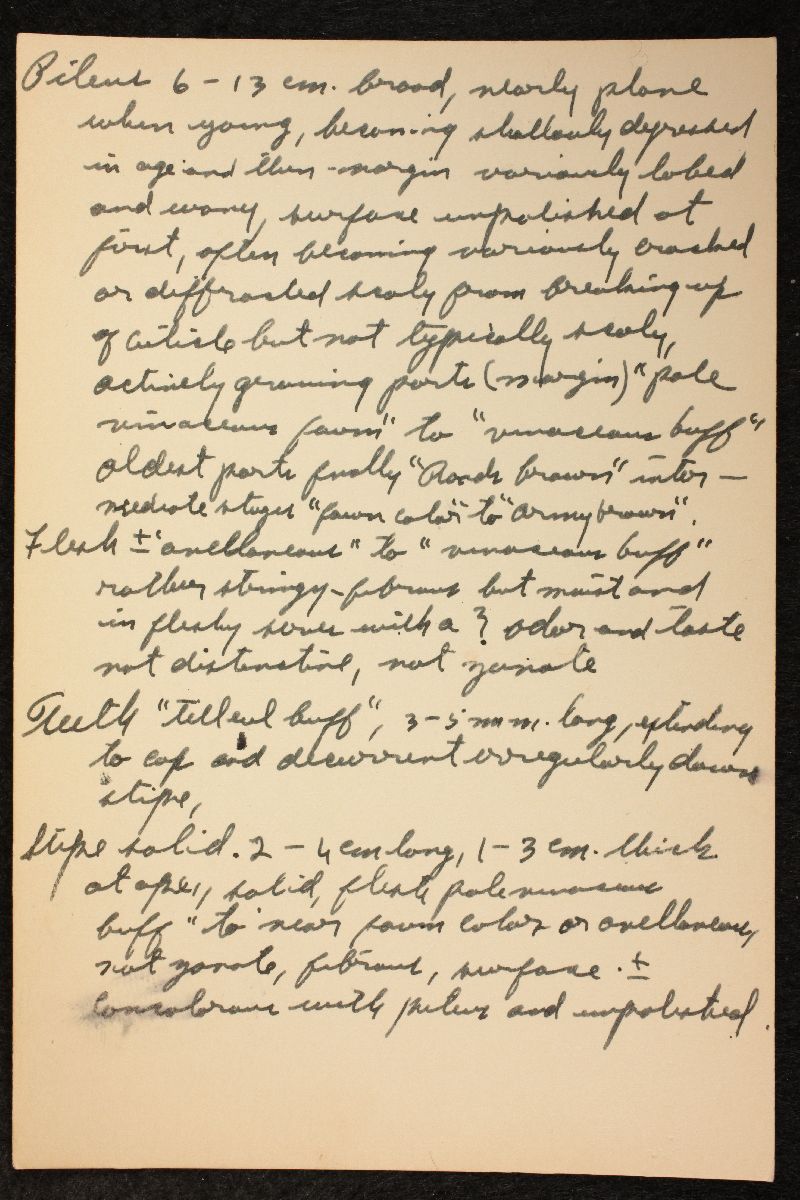 Pileus 6 – 13 cm. broad, nearly plane
when young, becoming shallowly depressed
in age and then margin variously lobed
and wavy, surface unpolished at
first, often becoming variously cracked
or diffracted scaly from breaking up
of cuticle but not typically scaly,
actively growing parts (margin) "pale
vinaceous fawn" to "vinaceous buff"
oldest parts finally "Roods brown" inter –
mediate stages "fawn color" to "army brown".
Flesh ± "avellaneous" to "vinaceous buff"
rather stringy-fibrous but moist and
in fleshy with a ? odor and taste
not distinctive, not zonate
Teeth "tilleul buff", 3–5 mm. long, extending
to cap and decurrent irregularly down
stipe,
Stipe solid. 2 – 4 cm long, 1–3 cm. thick
at apex, solid, flesh pale vinaceous
buff" to near fawn color or avellaneous,
not zonate, fibrous, surface ±
concolorous with pileus and unpolished.